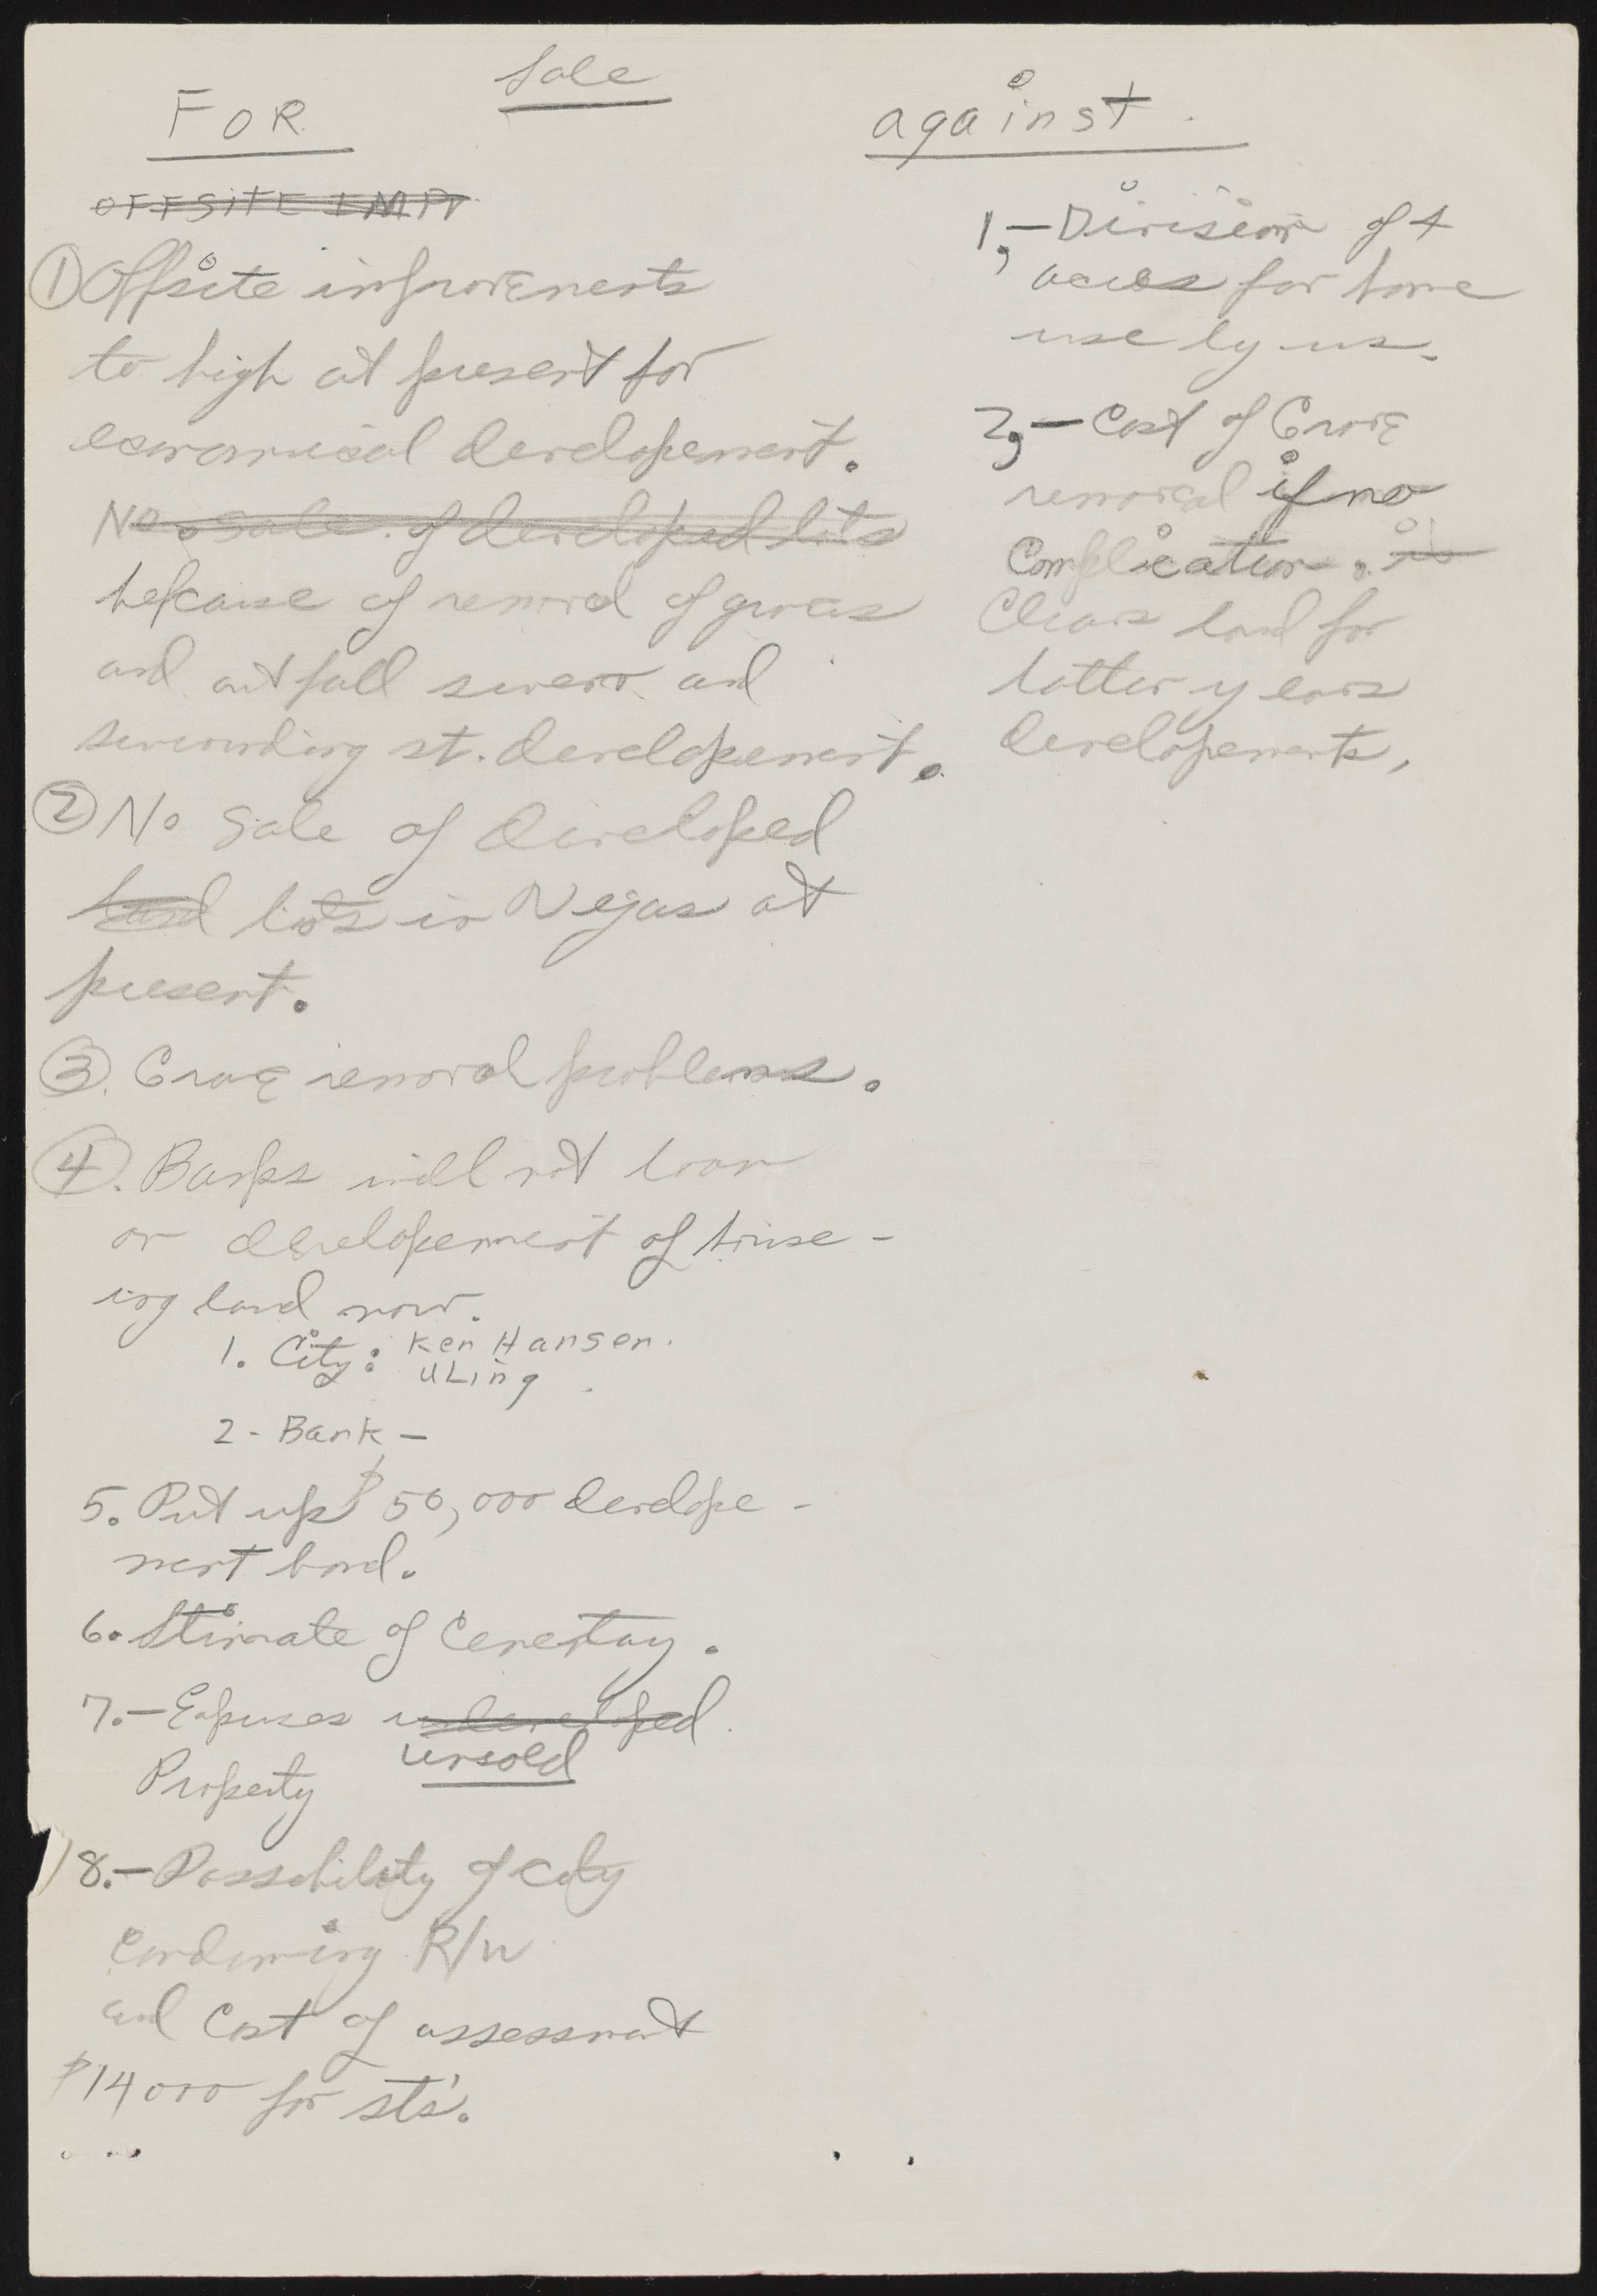 Sale
FOR
OFFSITE IMPr
① Offsite improvements
to high at present for
economical developement.
No sale of developed lots
because of removal of graves
and outfall sewer and
surrounding st. developement.
② No Sale of developed
land lots in Vegas at
present.
③. Grave removal problems.
④. Banks will not loan
on developement of hous-
ing land now.
1. City: Ken Hansen.
ULing
2 - Bank -
5. Put up $50,000 develope-
ment bond.
6. Stimate of Cemetary.
7. - Expenses undeveloped
unsold
Property
8. - Possibility of city
Condeming R/W
and Cost of assessment
$14000 for sts'.
against.
1, - Division of 4
acres for home
use by us.
2, - Cost of Grave
removal if no
Complication. is
Clears land for
latter years
developements,